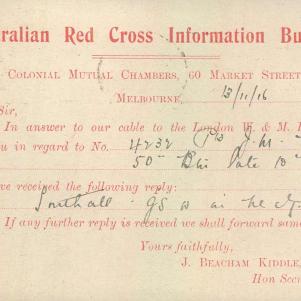 ralian Red Cross Information Bu
Colonial Mutual Chambers, 60 Market Street
Melbourne, 13/11/16
Sir,
In answer to our cable to the London W. & M. 
u in regard to No. 4232 Pte J.M.
50th Bn late 10
ve received the following reply:
Southall. GSW in
If any further reply is received we shall forward same
Yours faithfully,
J. Beacham Kiddle,
Hon Secre